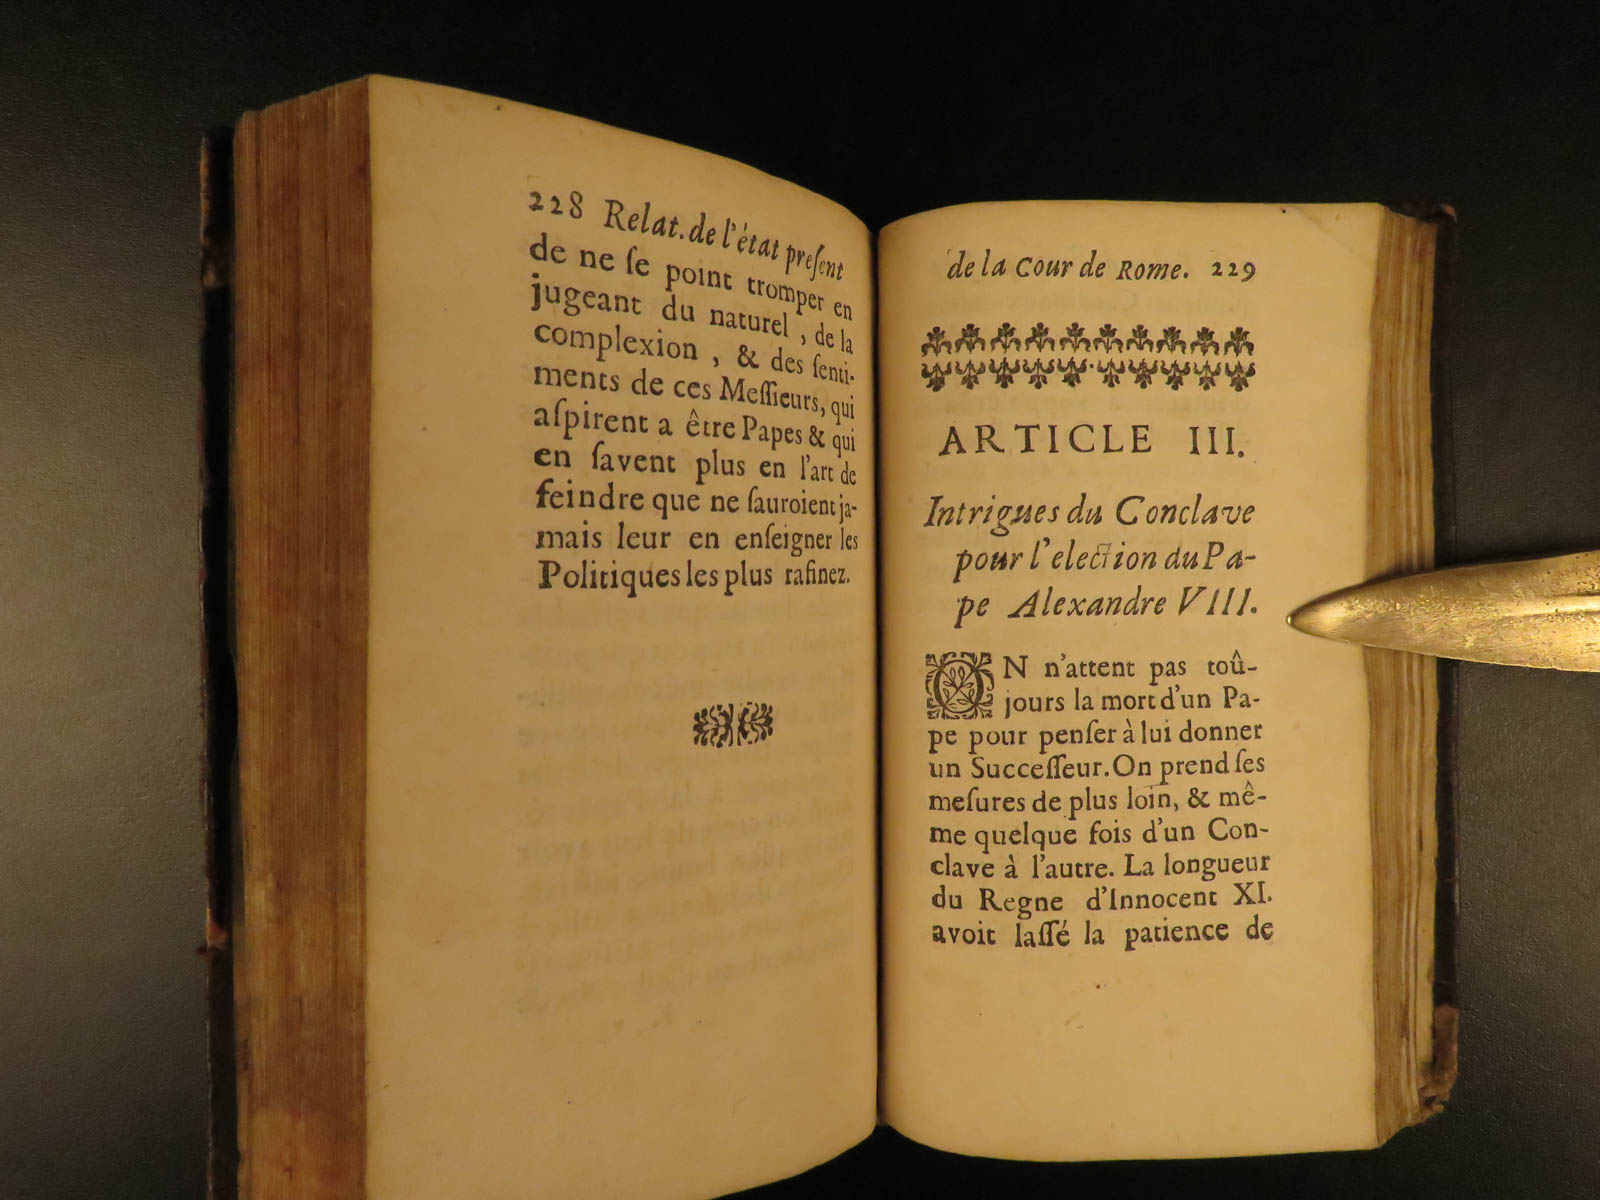 228 Relat. de l'état preſent
de ne ſe point tromper en
jugeant du naturel, de la
complexion, & des ſenti-
ments de ces Meſſieurs, qui
aſpirent a être Papes & qui
en ſavent plus en l'art de
feindre que ne ſauroient ja-
mais leur en enſeigner les
Politiques les plus rafinez.
de la Cour de Rome. 229
ARTICLE III.
Intrigues du Conclave
pour l'election du Pa-
pe Alexandre VIII.
ON n'attent pas toû-
jours la mort d'un Pa-
pe pour penſer à lui donner
un Succeſſeur. On prend ſes
meſures de plus loin, & mê-
me quelque fois d'un Con-
clave à l'autre. La longueur
du Regne d'Innocent XI.
avoit laſſé la patience de